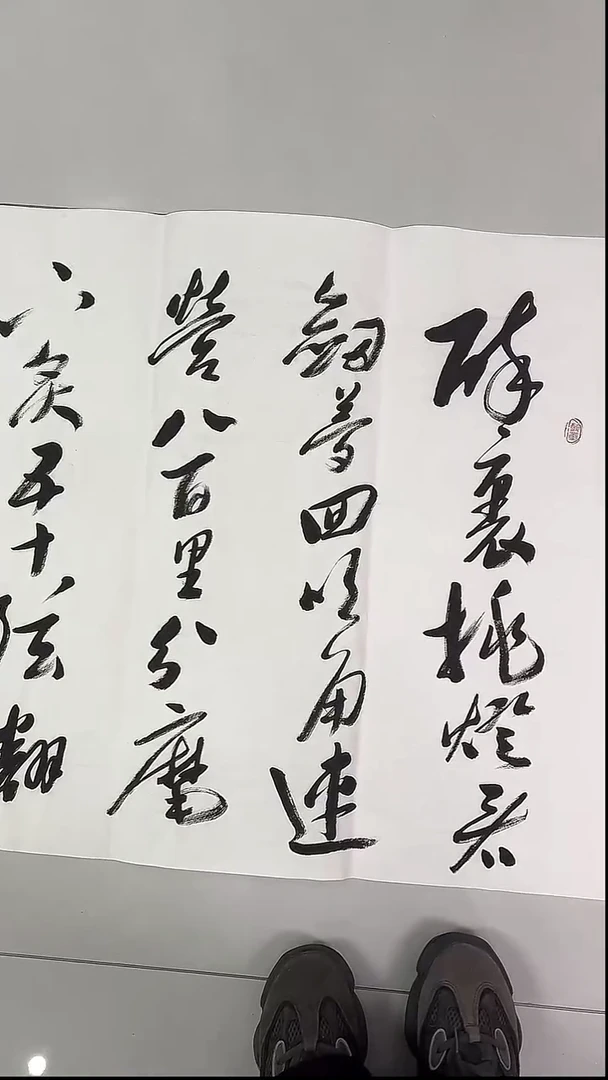 醉裏挑燈看
劍夢回吹角連
營八百里分麾
下炙五十弦翻